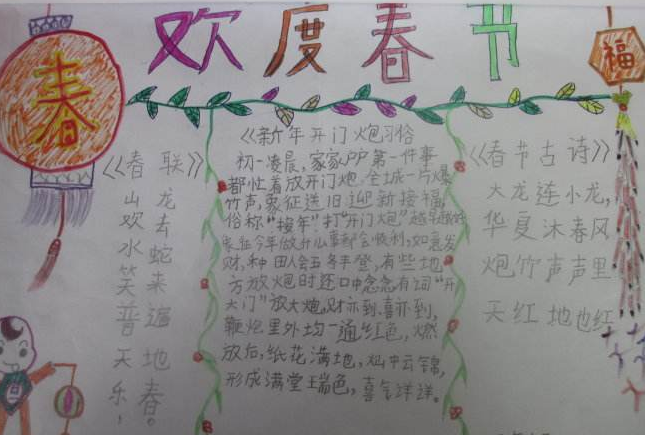 欢度春节
春
福
《春联》
龙去蛇来遍地春。
山欢水笑普天乐，
《新年开门炮习俗
初一凌晨，家家户户第一件事
都忙着放开门炮，全城一片爆
竹声，象征送旧迎新接福，
俗称“接年”打“开门炮”越早
今年做什么事都会顺利，如意发
财，种田人会五多丰登，有些地
方放炮时还口中念念有词“开
大门”放大炮，财亦到喜亦到，
鞭炮里外均一通红色，燃
放后，纸花满地，灿中云锦，
形成满堂瑞色，喜气洋洋。
《春节古诗》
大龙连小龙，
华夏沐春风
炮竹声声里
天红地也红